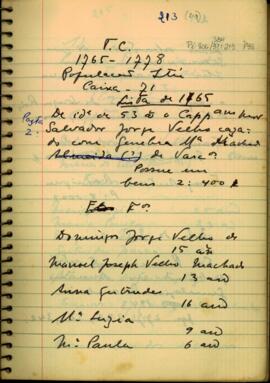 213
T.C.
1765-1778
População Itú
Caixa - 71
Lista de 1765
Pasta 2:
De id.e de 53 a o Capp am mor
Salvador Jorge Velho caza-
do com Genebra Mª Machad
Almeida (?) de Vasc.os
Possue em
bens 2:400$
Fos
Domingo Jorge Velho de
15 año
Manoel Joseph Velho Machado
13 ano
Anna Gertrudes
16 ano
Mª Luzia
9 ano
Mª Paula 6 ano